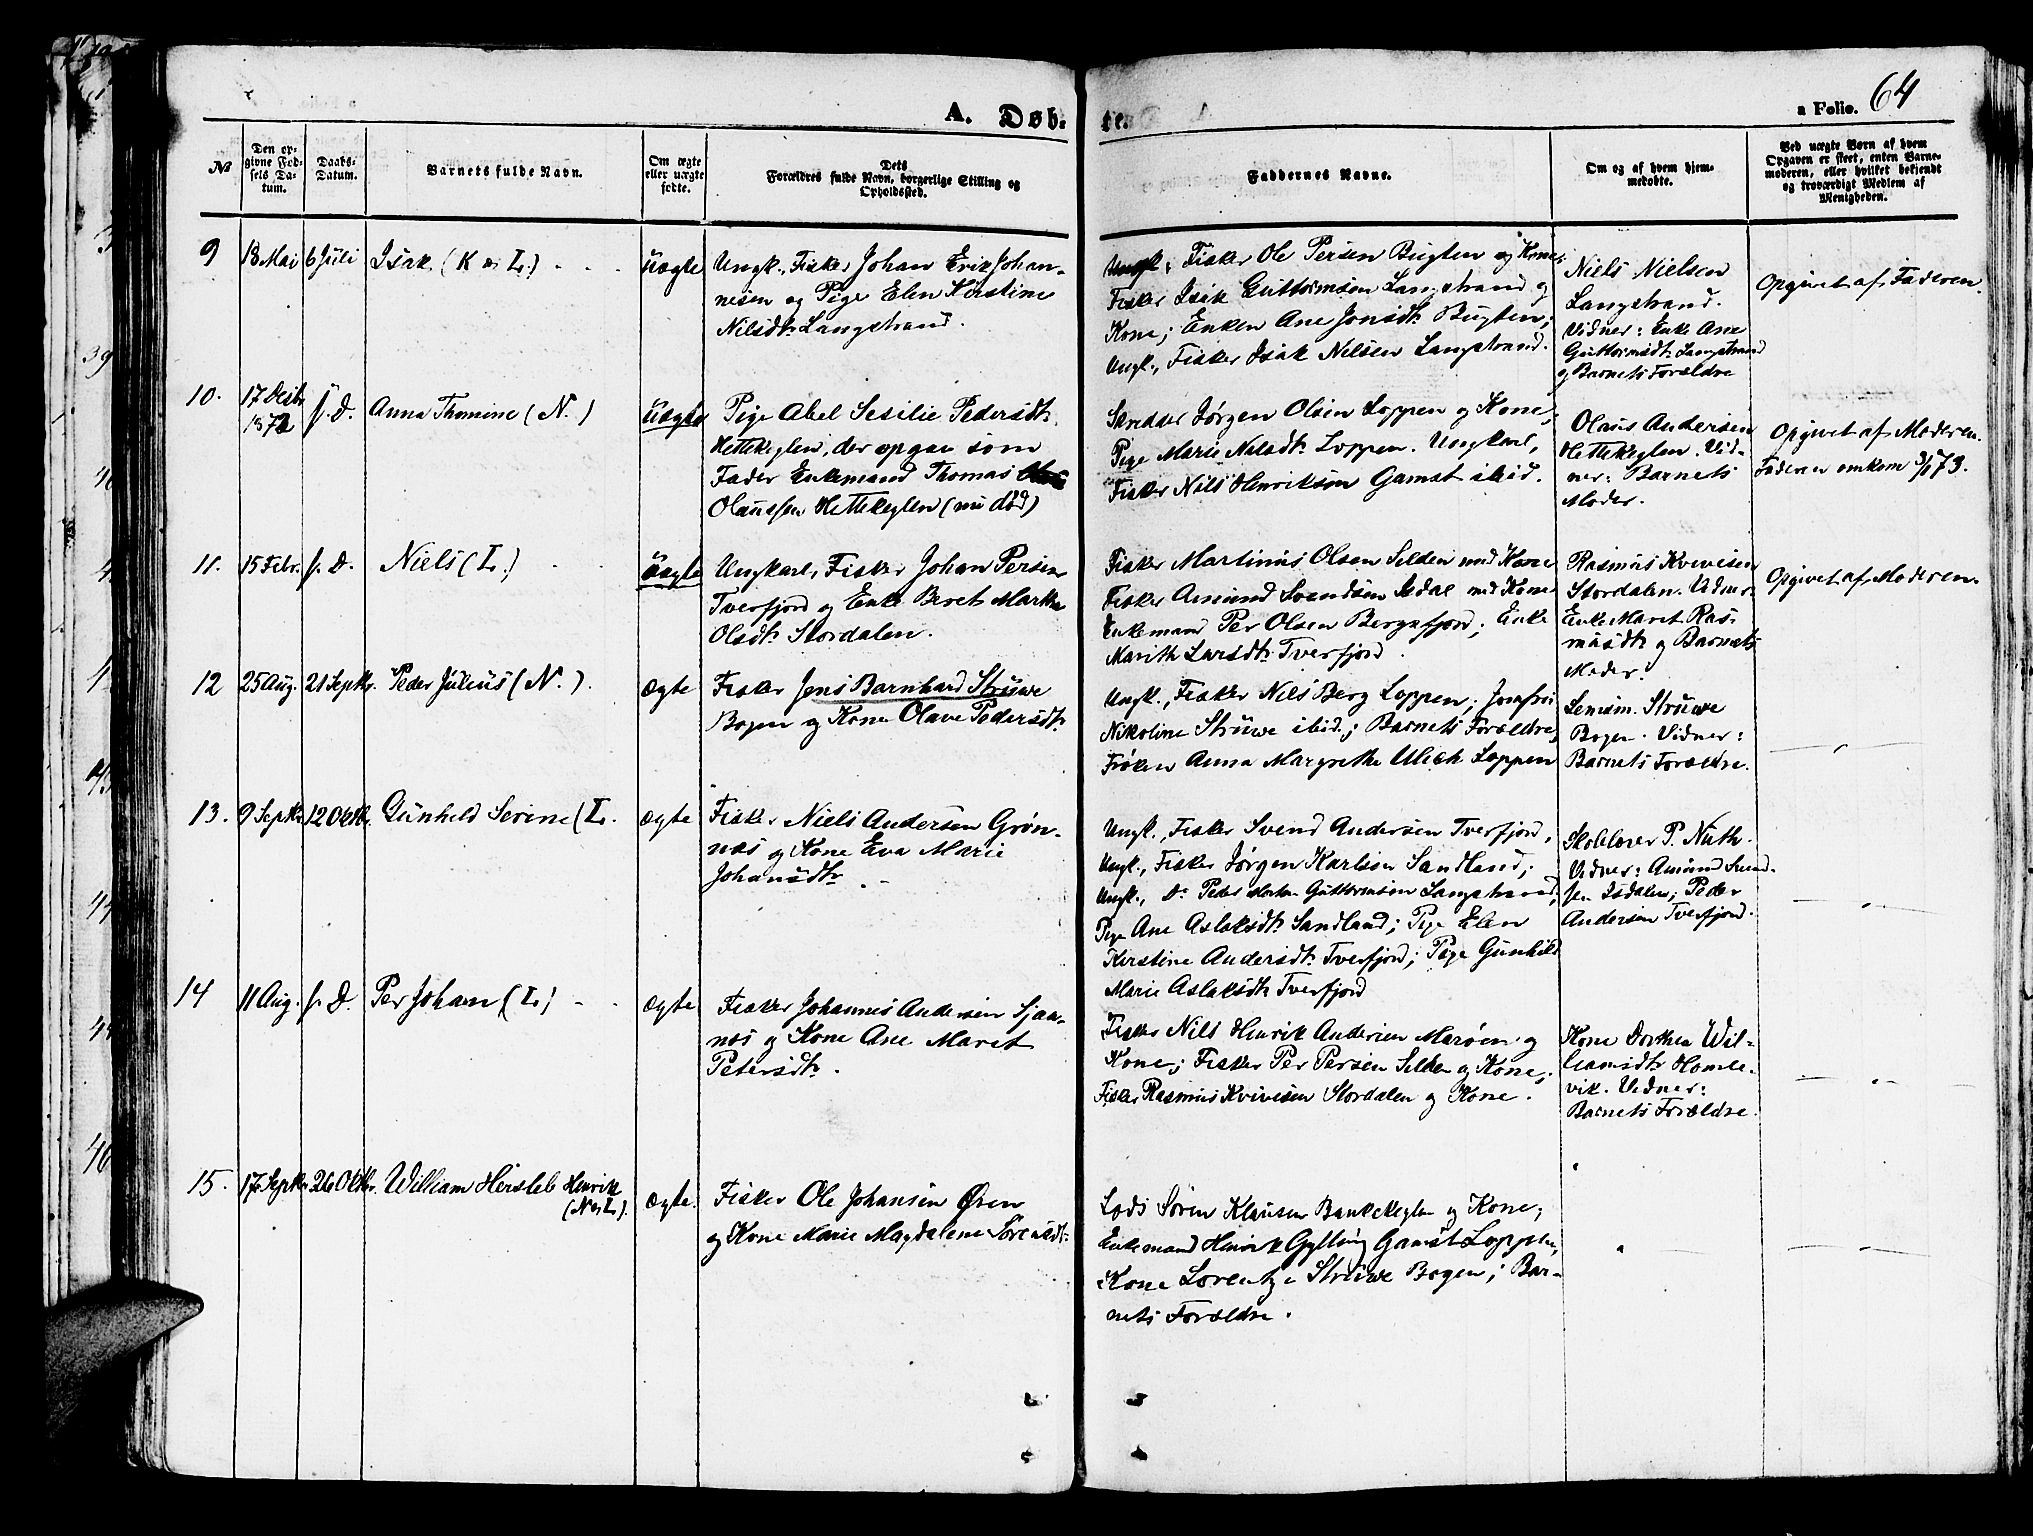 64
A. Døb-
te.
a Folio.
No
Den op-
givne Fød-
sels Da-
tum.
Daabs-
Datum.
Barnets fulde Navn.
Om ægte
eller uægte
fødte.
Dets
Forældres fulde Navn, borgerlige Stilling og
Opholdssted.
Faddernes Navne.
Om og af hvem hjem-
medøbte.
Ved uægte Børn af hvem
Opgaven er skeet, enten Barne-
moderen, eller hvilket bekjendt
og troværdigt Medlem af
Menigheden.
9
13 Mai
6 Juli
Isak (K og L.)
uægte
Ungk., Fisker Johan Erik Johan-
nesen og Pige Elen Kirstine
Nilsdtr Langstrand.
Ungk., Fisker Ole Persen Bugten og Kone;
Fisker Isak Guttormsen Langstrand og
Kone; Enken Ane Jonsdtr Bugten;
Ungk., Fisker Isak Nilsen Langstrand.
Niels Nielsen
Langstrand.
Vidner: Enke Ane
Guttormsdtr Langstrand
og Barnets Forældre
Opgivet af Faderen.
10.
17 Desbr
1872
s. D.
Anna Thomine (N.)
uægte
Pige Abel Sesilie Pedersdtr
Hettekeglen, der opgav som
Fader Enkemand Thomas
Olaussen Hettekeglen (nu død)
Skredder Jørgen Olsen Loppen og Kone;
Pige Marie Nilsdtr Loppen. Ungkarl,
Fisker Nils Henriksen Gamst ibid.
Olaus Andersen
Hettekeglen. Vid-
ner: Barnets
Moder.
Opgivet af Moderen.
Faderen omkom 3/1 73.
11.
15 Febr.
s. D.
Niels (L.)
uægte
Ungkarl, Fisker Johan Persen
Tverfjord og Enke Beret Marthe
Olsdtr Stordalen.
Fisker Martinus Olsen Selden med Kone
Fisker Amund Svendsen Isdal med Kone
Enkemand Per Olsen Bergsfjord; Enke
Marith Larsdtr Tverfjord.
Rasmus Kvivesen
Stordalen. Vidner:
Enke Maret Ras-
musdtr og Barnets
Moder.
Opgivet af Moderen.
12
25 Aug.
21 Septbr.
Peder Julius (N.).
ægte
Fisker Jens Barnhard Struwe
Bogen og Kone Olave Pedersdtr
Ungk., Fisker Nils Berg Loppen; Jomfru
Nikoline Struwe ibid.; Barnets Forældre,
Frøken Anna Margrethe Ulich Loppen
Struwe
Bogen. Vidner:
Barnets Forældre.
13.
9 Septbr
12 Oktbr.
Gunhild Serine (L.
ægte
Fisker Niels Andersen Grøn-
nes og Kone Eva Marie
Johansdtr.
Ungk., Fisker Svend Andersen Tverfjord,
Ungk., Fisker Jørgen Karlsen Sandland;
Ungk., Do Peder Morten Guttormsen Langstrand;
Pige Ane Aslaksdtr Sandland; Pige Elen
Kerstine Andersdtr Tverfjord; Pige Gunhild
Marie Aslaksdtr Tverfjord
Skolelærer P. Nuth.
Vidner: Amund Svend-
sen Isdalen; Peder
Andersen Tverfjord.
14
11 Aug.
s. D.
Per Johan (L.)
ægte
Fisker Johannes Andersen Sjaa-
nes og Kone Ane Maret
Petersdtr.
Fisker Nils Henrik Andersen Marøen og
Kone; Fisker Per Persen Selden og Kone;
Fisker Rasmus Kvivesen Stordalen og Kone.
Kone Dorthea Wil-
liamsdtr Homle-
vik. Vidner:
Barnets Forældre.
15.
17 Septbr
26 Oktbr.
William Hersleb Henrik
(N og L.)
ægte.
Fisker Ole Johansen Øren
og Kone Marie Magdalene Sørensdtr.
Lods Søren Klausen Bankekeglen og Kone;
Enkemand Henrik Gylling Gamst Loppen,
Kone Lorentze Struwe Bogen; Bar-
nets Forældre.